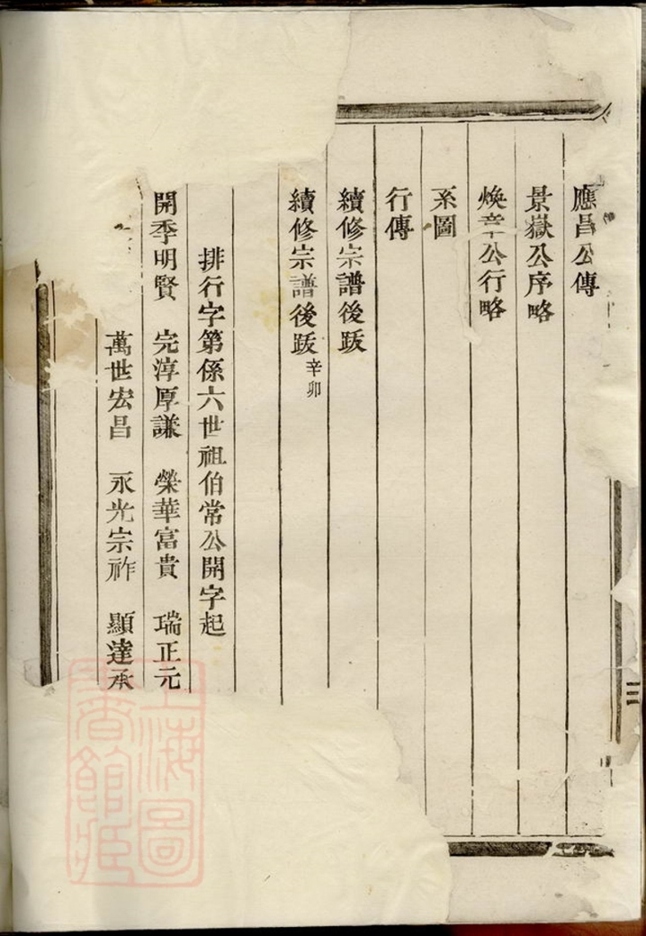 應昌公傳
景嶽公序略
煥章公行略
系圖
行傳
續修宗譜後跋
續修宗譜後跋辛卯
排行字第係六世祖伯常公開字起
開季明賢 完淳厚謙 榮華富貴 瑞正元
萬世宏昌 永光宗祚 顯達承
三
上海圖
書館藏